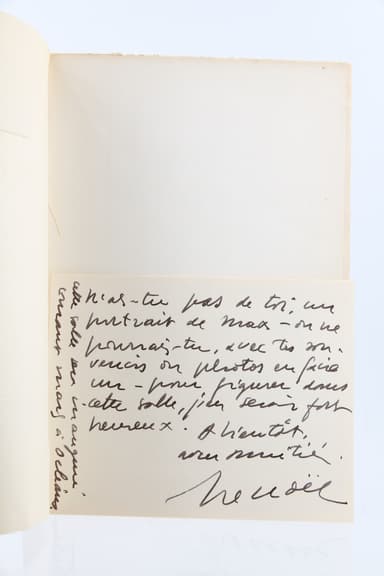 N'as-tu pas de toi, un
portrait de Max – ou ne
pourrais-tu, avec tes sou-
venirs ou photos en faire
un – pour figurer dans
cette salle, j'en serais fort
heureux. A bientôt,
mon amitié.
cette salle est inaugurée
courant mars à Orléans